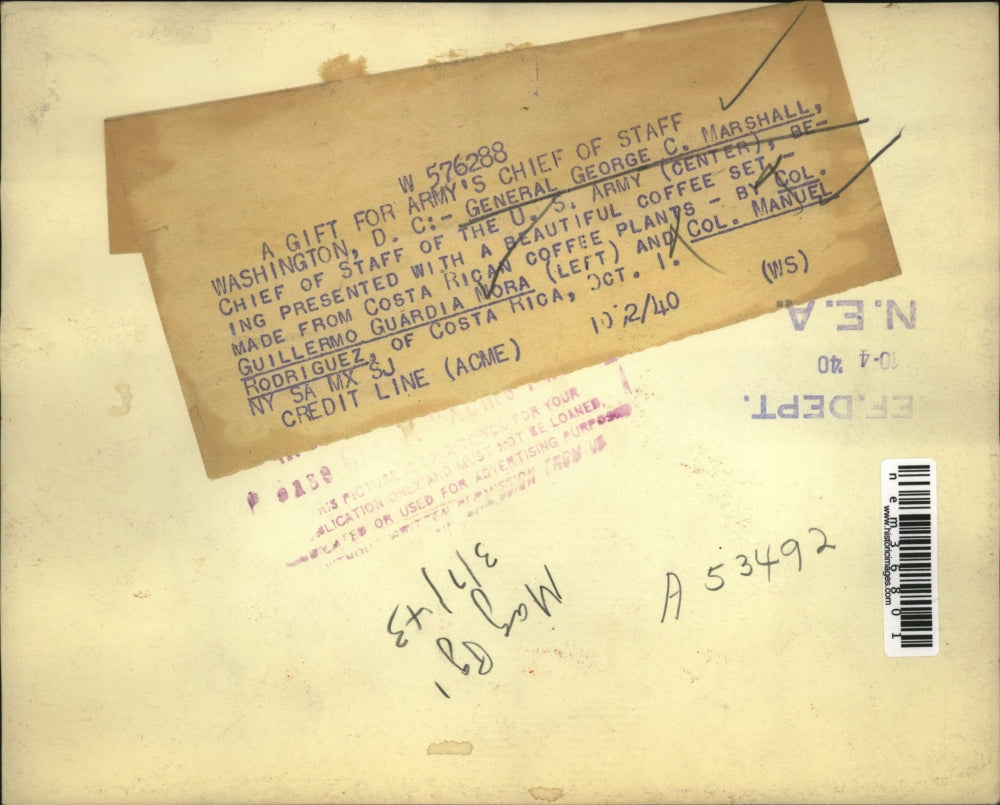 W 576288
A GIFT FOR ARMY'S CHIEF OF STAFF
WASHINGTON, D. C:- GENERAL GEORGE C. MARSHALL,
CHIEF OF STAFF OF THE U. S. ARMY (CENTER), BE-
ING PRESENTED WITH A BEAUTIFUL COFFEE SET,-
MADE FROM COSTA RICAN COFFEE PLANTS - BY COL.
GUILLERMO GUARDIA MORA (LEFT) AND COL. MANUEL
RODRIGUEZ, OF COSTA RICA, OCT. 1.
NY SA MX SJ
CREDIT LINE (ACME) 10/2/40 (WS)
N.E.A.
10-4 '40
REF.DEPT.
PICTURE IS SOLD TO YOU FOR YOUR
PUBLICATION ONLY AND MUST NOT BE LOANED,
OR USED FOR ADVERTISING PURPOSES
WITHOUT WRITTEN PERMISSION FROM US
Mag
3/7/43
A 53492
nem36801
www.historicimages.com